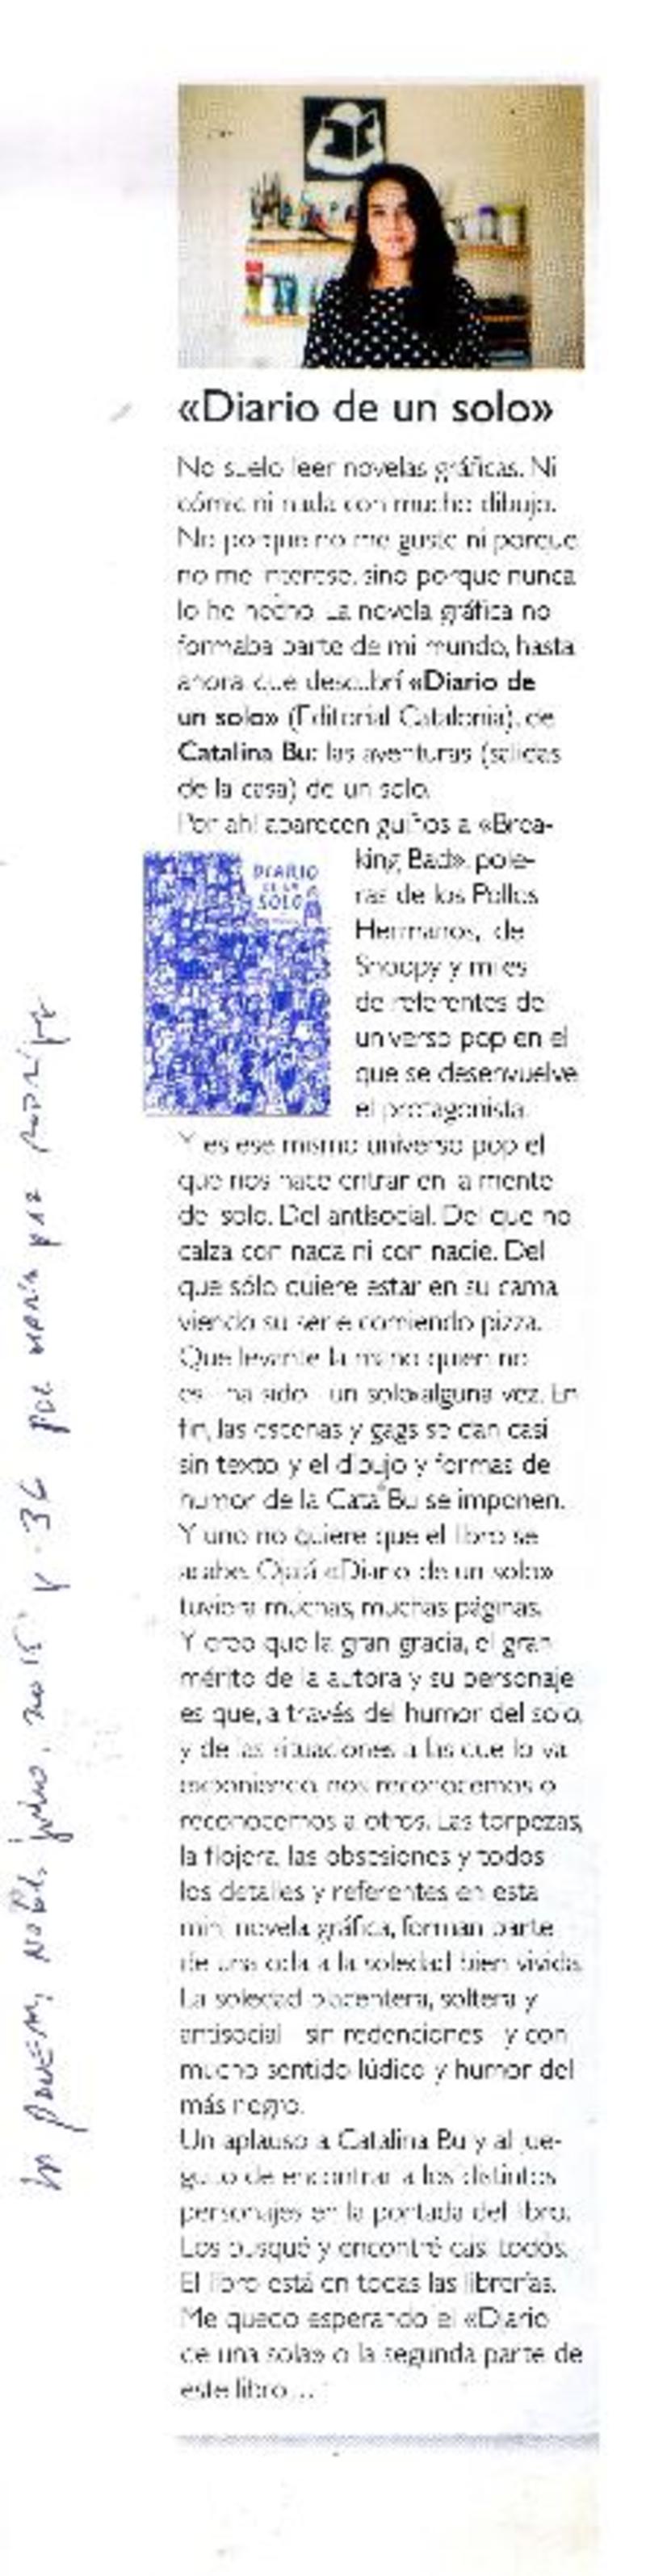 «Diario de un solo»
No suelo leer novelas gráficas. Ni
cómic ni nada con mucho dibujo.
No porque no me guste ni porque
no me interese, sino porque nunca
lo he hecho. La novela gráfica no
formaba parte de mi mundo, hasta
ahora que descubrí «Diario de
un solo» (Editorial Catalonia), de
Catalina Bu: las aventuras (salidas
de la casa) de un solo.
Por ahí aparecen guiños a «Brea-
king Bad», pole-
ras de los Pollos
Hermanos, de
Snoopy y miles
de referentes del
universo pop en el
que se desenvuelve
el protagonista.
DIARIO
DE UN
SOLO
Y es ese mismo universo pop el
que nos hace entrar en la mente
del solo. Del antisocial. Del que no
calza con nada ni con nadie. Del
que sólo quiere estar en su cama
viendo su serie comiendo pizza.
Que levante la mano quien no
es - ha sido - un solo alguna vez. En
fin, las escenas y gags se dan casi
sin texto y el dibujo y formas de
humor de la Cata Bu se imponen.
Y uno no quiere que el libro se
acabe. Ojalá «Diario de un solo»
tuviera muchas, muchas páginas.
Y creo que la gran gracia, el gran
mérito de la autora y su personaje
es que, a través del humor del solo,
y de las situaciones a las que lo va
exponiendo, nos reconocemos o
reconocemos a otros. Las torpezas,
la flojera, las obsesiones y todos
los detalles y referentes en esta
mini novela gráfica, forman parte
de una oda a la soledad bien vivida.
La soledad placentera, soltera y
antisocial - sin redenciones - y con
mucho sentido lúdico y humor del
más negro.
Un aplauso a Catalina Bu y al jue-
guito de encontrar a los distintos
personajes en la portada del libro.
Los busqué y encontré casi todos.
El libro está en todas las librerías.
Me quedo esperando el «Diario
de una sola» o la segunda parte de
este libro...
julio, 2015 p. 36 por maría paz